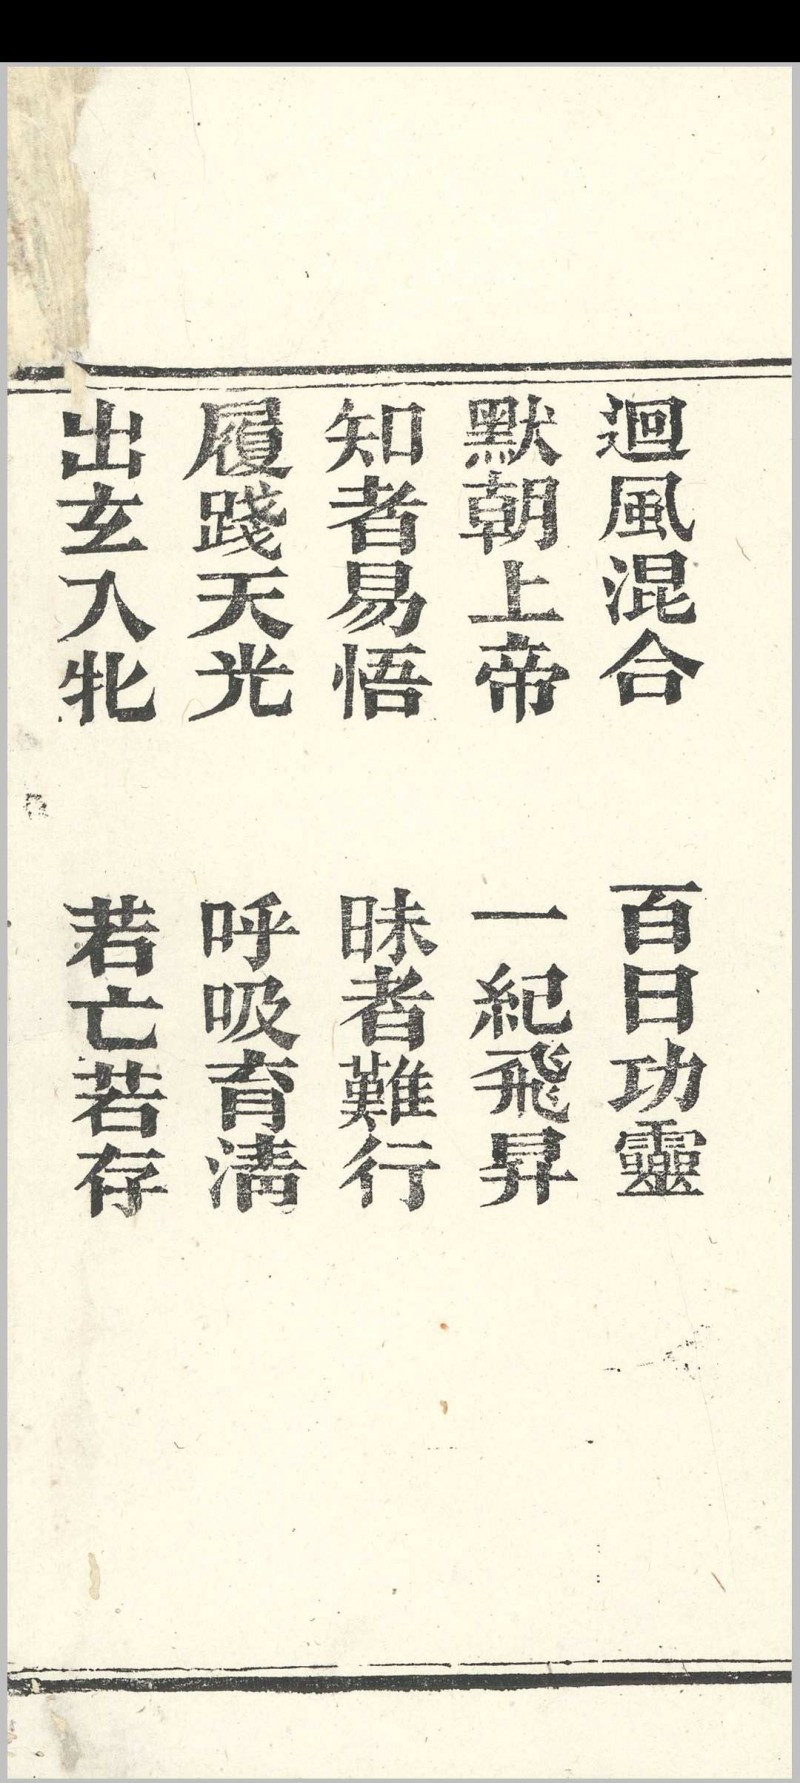 迴風混合　百日功靈
默朝上帝　一紀飛昇
知者易悟　昧者難行
履踐天光　呼吸育清
出玄入牝　若亡若存